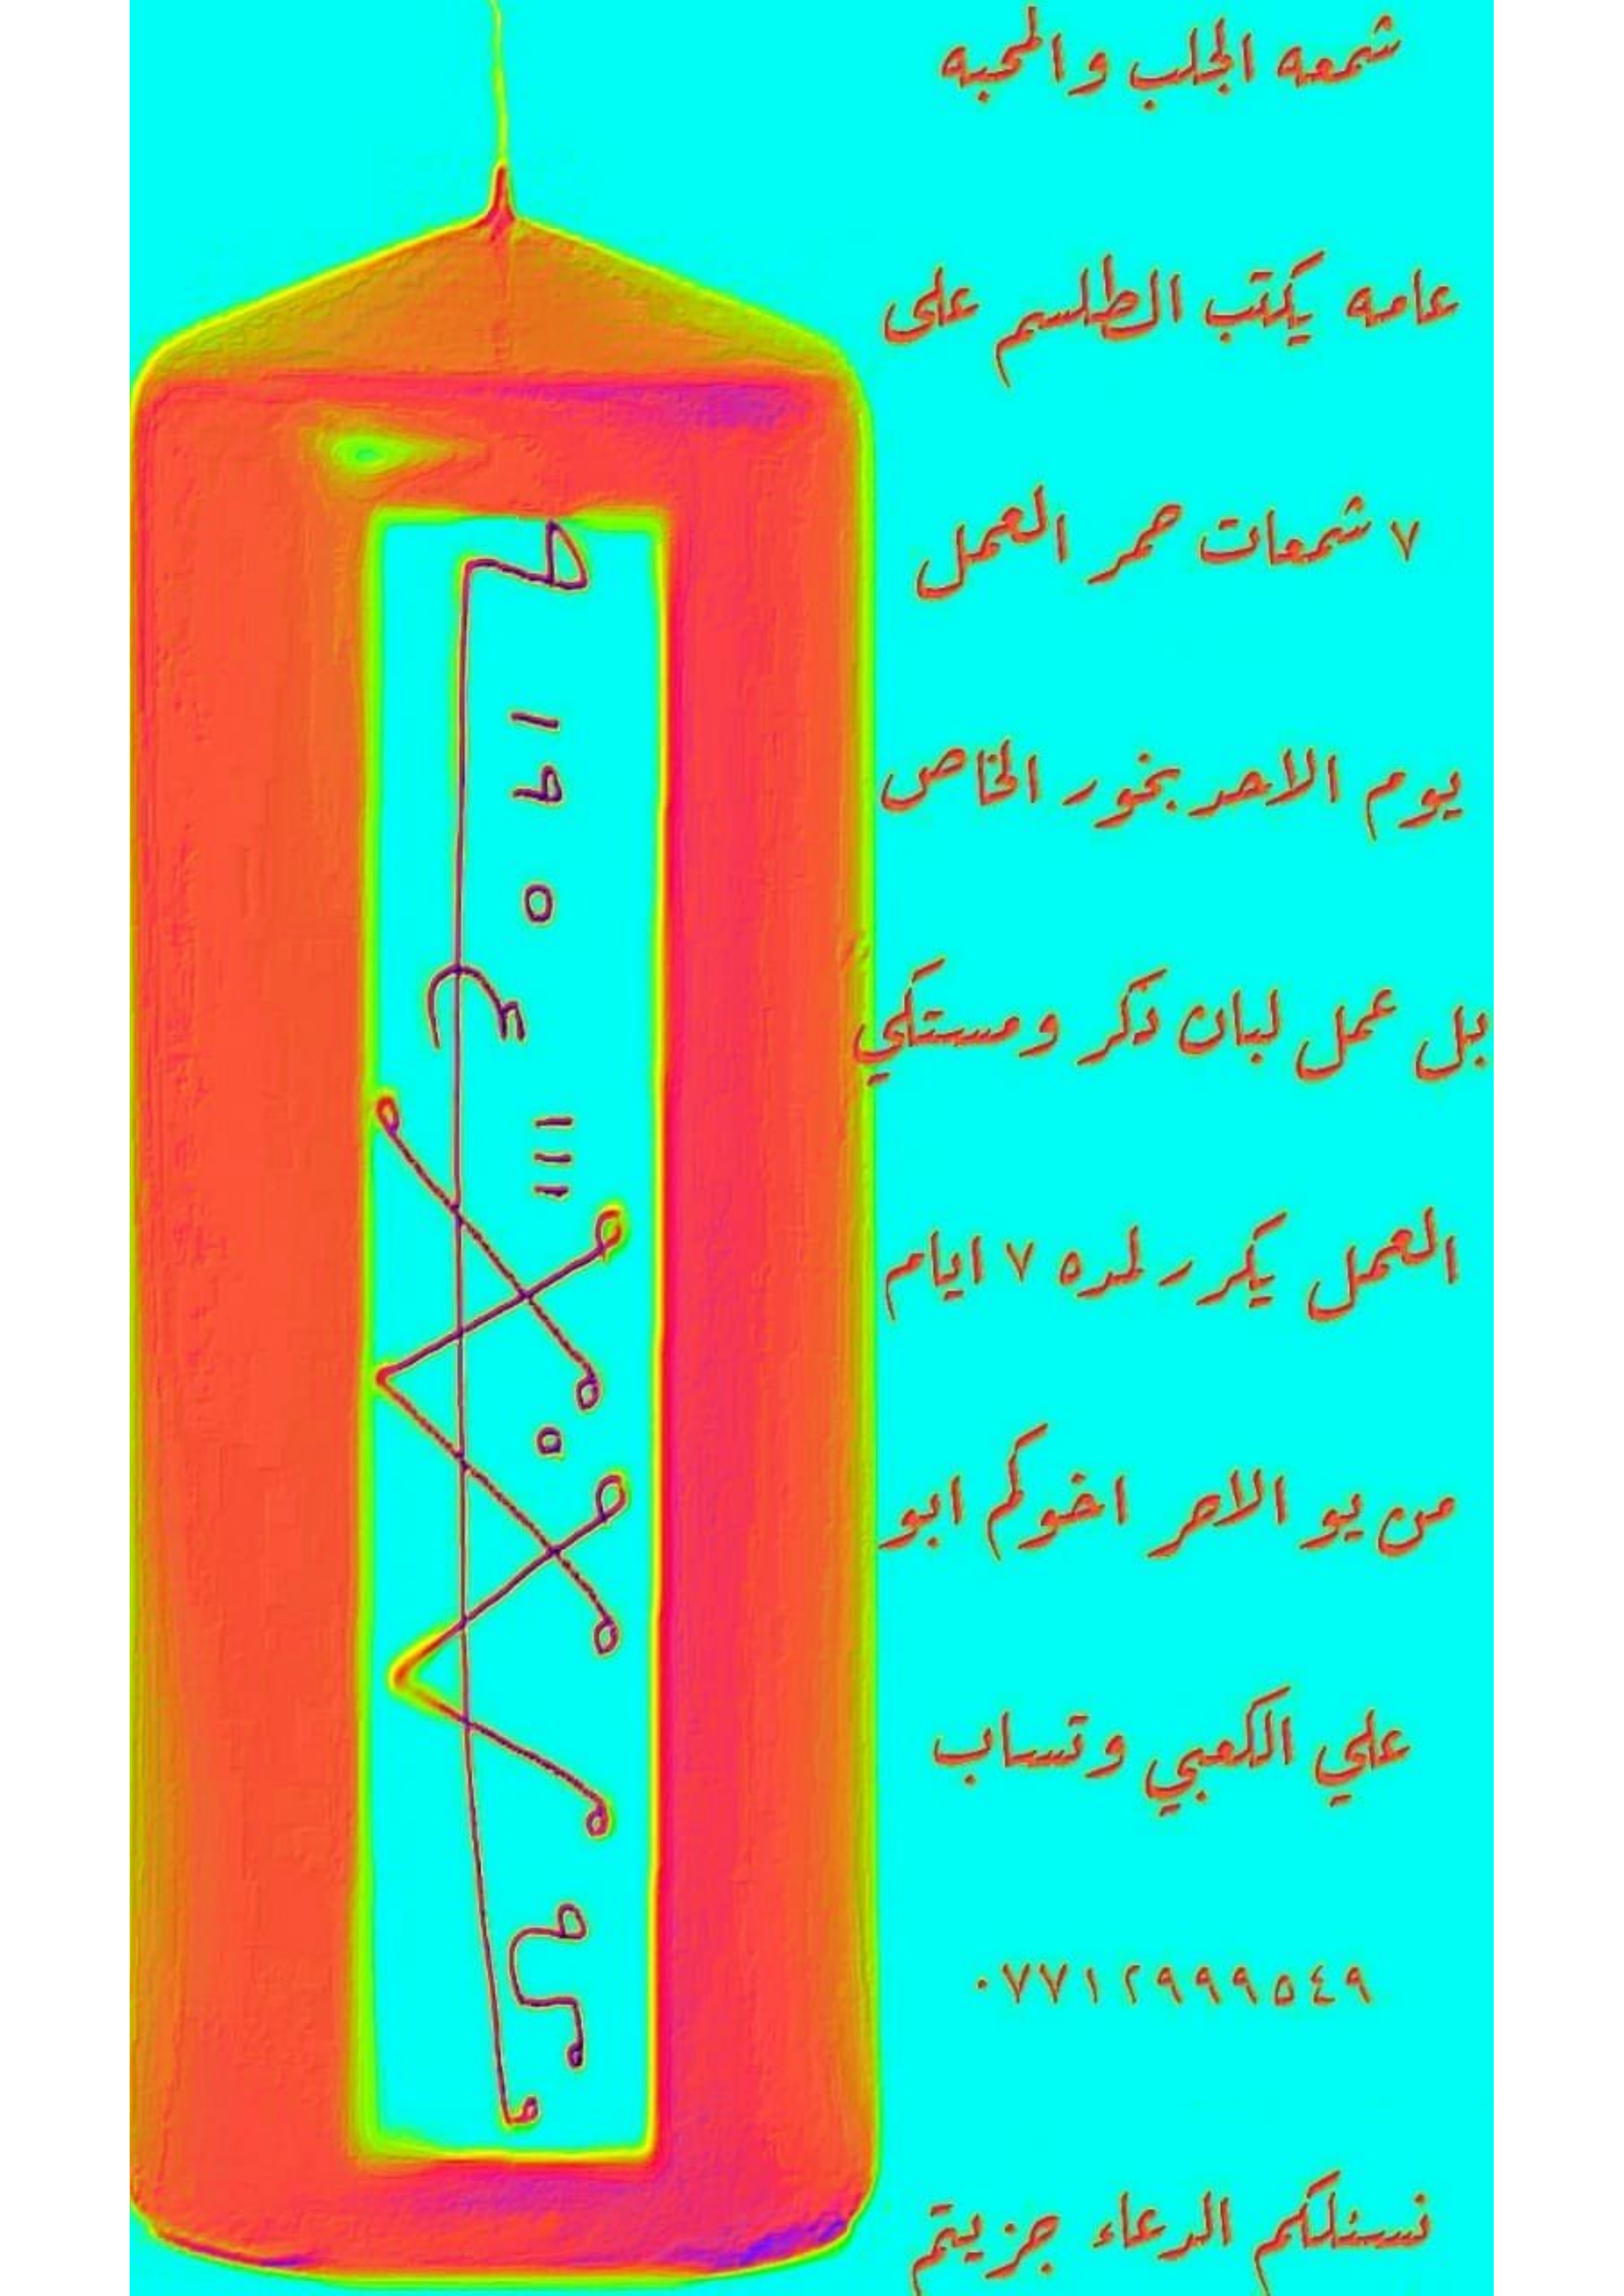 شمعه الجلب والمحبه
عامه يكتب الطلسم على
٧ شمعات حمر العمل
يوم الاحد بخور الخاص
بل عمل لبان ذكر ومستكي
العمل يكرر لمده ٧ ايام
من يو الاحر اخوكم ابو
علي الكعبي وتساب
٠٧٧١٢٩٩٩٥٤٩
نسئلكم الدعاء جزيتم